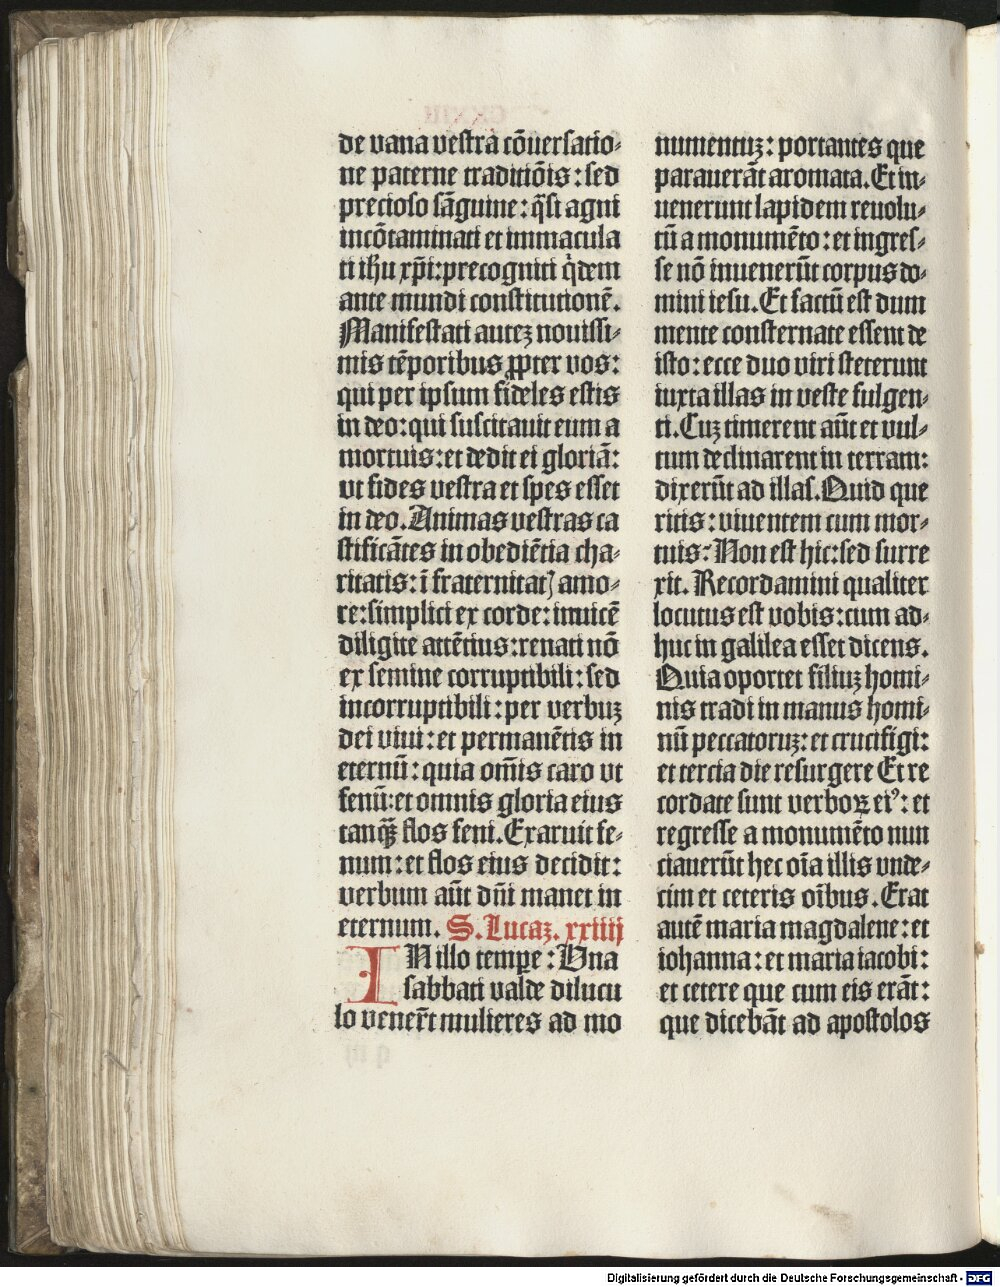 de vana vestra cōuersatio⸗
ne paterne traditiōis: sed
precioso sāguine: q̄si agni
incōtaminati et immacula
ti ihu xp̄i: precogniti q̇dem
ante mundi constitutionē.
Manifestati autez nouissi⸗
mis tēporibus ꝓpter vos:
qui per ipsum fideles estis
in deo: qui suscitauit eum a
mortuis: et dedit ei gloriā:
vt fides vestra et spes esset
in deo. Animas vestras ca
stificātes in obediētia cha⸗
ritatis: ī fraternitatꝭ amo⸗
re: simplici ex corde: inuicē
diligite attētius: renati nō
ex semine corruptibili: sed
incorruptibili: per verbuz
dei viui: et permanētis in
eternū: quia om̄is caro vt
fenū: et omnis gloria eius
tanqꝫ flos feni. Exaruit fe⸗
num: et flos eius decidit:
verbum aūt dn̄i manet in
eternum. S. Lucaz. xxiiij
IN illo tempe: Vna
sabbati valde dilucu
lo vener̄t mulieres ad mo
numentuz: portantes que
parauerāt aromata. Et in⸗
uenerunt lapidem reuolu⸗
tū a monumēto: et ingres⸗
se nō inuenerūt corpus do⸗
mini iesu. Et factū est dum
mente consternate essent de
isto: ecce duo viri steterunt
iuxta illas in veste fulgen⸗
ti. Cuz timerent aūt et vul⸗
tum declinarent in terram:
dixerūt ad illas. Quid que
ritis: viuentem cum mor⸗
tuis: Non est hic: sed surre
xit. Recordamini qualiter
locutus est vobis: cum ad⸗
huc in galilea esset dicens.
Quia oportet filiuz homi⸗
nis tradi in manus homi⸗
nū peccatoruz: et crucifigi:
et tercia die resurgere Et re
cordate sunt verboꝝ eiꝰ: et
regresse a monumēto nun
ciauerūt hec oīa illis vnde⸗
cim et ceteris oībus. Erat
autē maria magdalene: et
iohanna: et maria iacobi:
et cetere que cum eis erāt:
que dicebāt ad apostolos
Digitalisierung gefördert durch die Deutsche Forschungsgemeinschaft - DFG